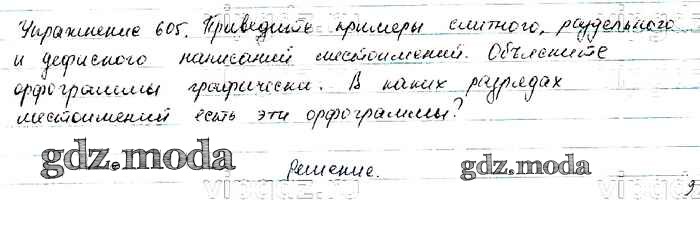 Упражнение 605. Приведите примеры слитного, раздельного
и дефисного написаний местоимений. Объясните
орфограммы графически. В каких разрядах
местоимений есть эти орфограммы?
gdz.moda
Решение.
gdz.moda